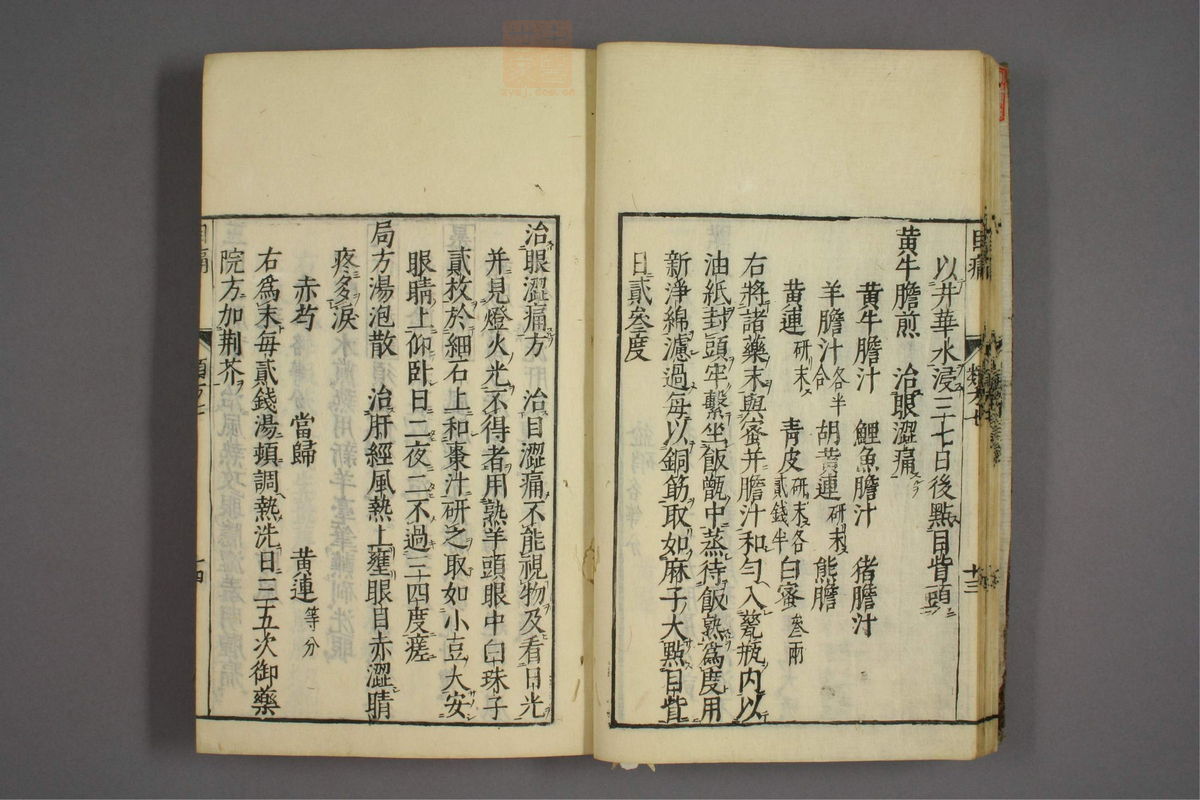 目痛
類方七
十三
以井華水浸三七日後點目眥頭
黄牛膽煎 治眼澀痛
黄牛膽汁 鯉魚膽汁 猪膽汁
羊膽汁各半合 胡黄連研末 熊膽
黄連研末 青皮研末各貳錢半 白蜜叄兩
右將諸藥末與蜜并膽汁和匀入甆瓶内以
油紙封頭牢繫坐飯甑中蒸待飯熟爲度用
新淨綿濾過每以銅筋取如麻子大點目眥
日貳叄度
治眼澀痛方 治目澀痛不能視物及看日光
并見燈火光不得者用熟羊頭眼中白珠子
貳枚於細石上和棗汁研之取如小豆大安
眼睛上仰卧日二夜二不過三四度瘥
局方湯泡散 治肝經風熱上壅眼目赤澀睛
疼多淚
赤芍 當歸 黄連等分
右爲末每貳錢湯頓調熱洗日三五次御藥
院方加荆芥
十四